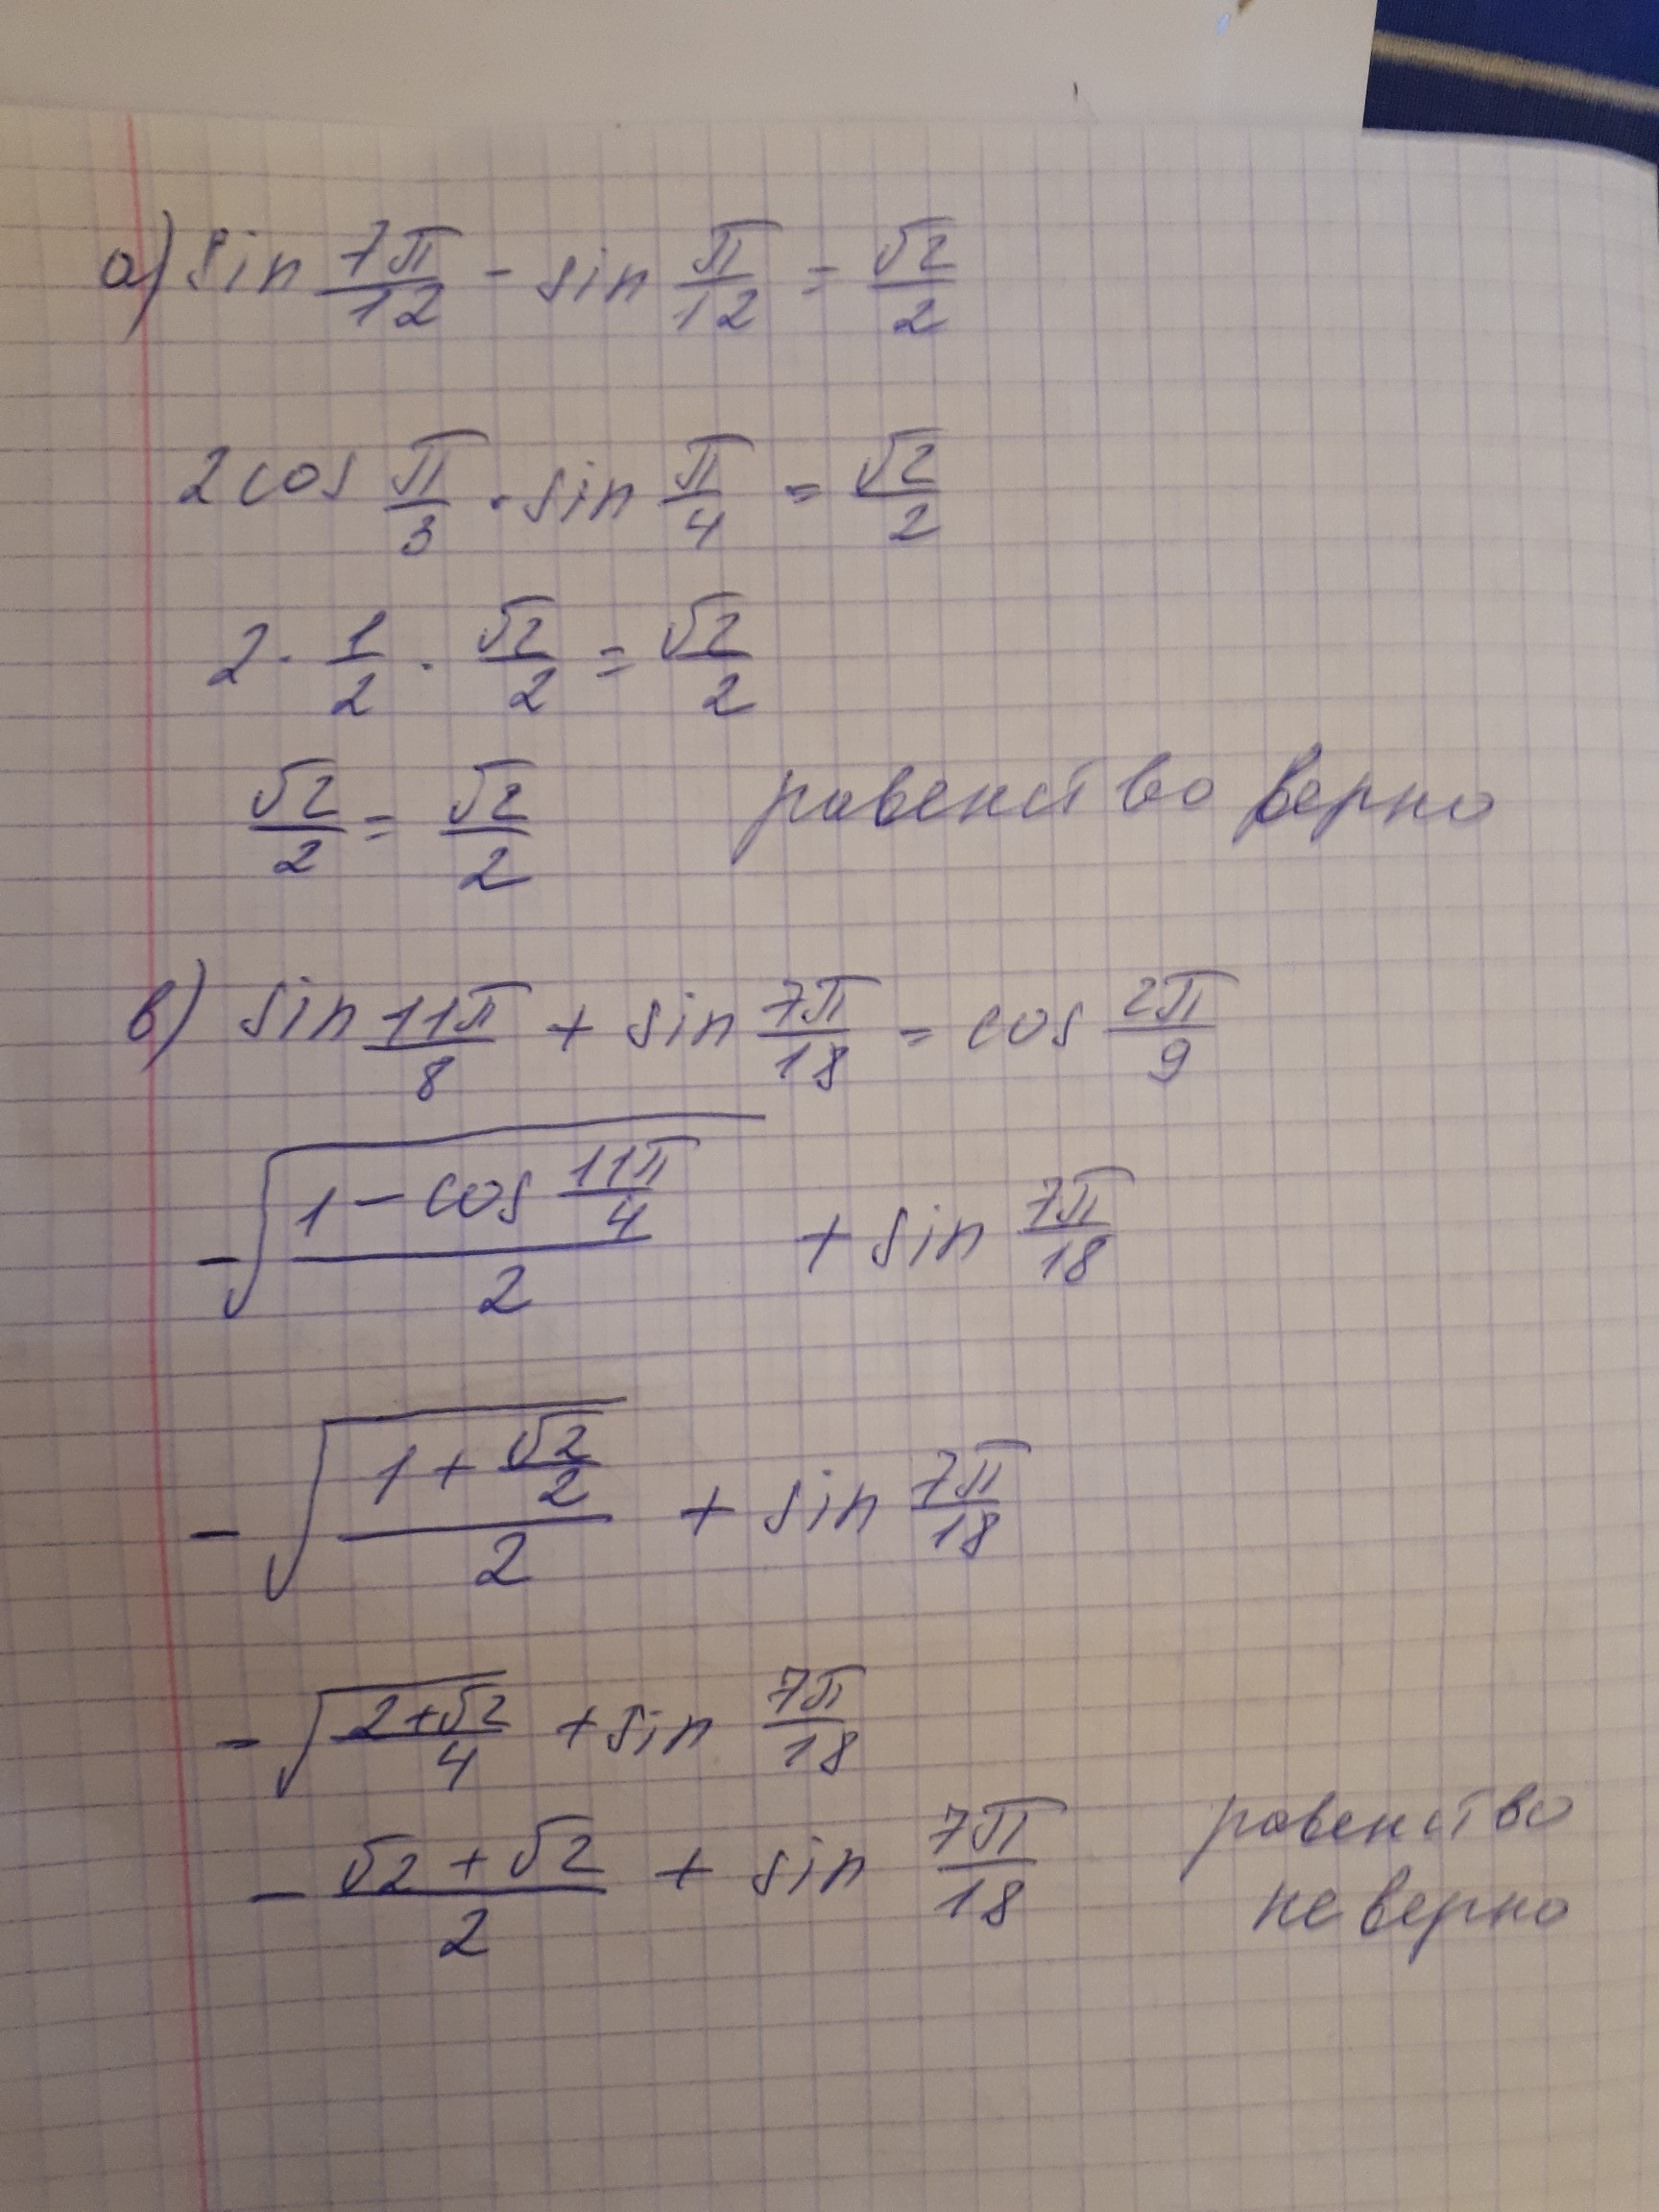 а) sin 7π/12 - sin π/12 = √2/2
2 cos π/3 · sin π/4 = √2/2
2 · 1/2 · √2/2 = √2/2
√2/2 = √2/2 равенство верно
в) sin 11π/8 + sin 7π/18 = cos 2π/9
-√((1 - cos 11π/4)/2) + sin 7π/18
-√((1 + √2/2)/2) + sin 7π/18
-√((2+√2)/4) + sin 7π/18
- (√2 + √2)/2 + sin 7π/18 равенство
не верно